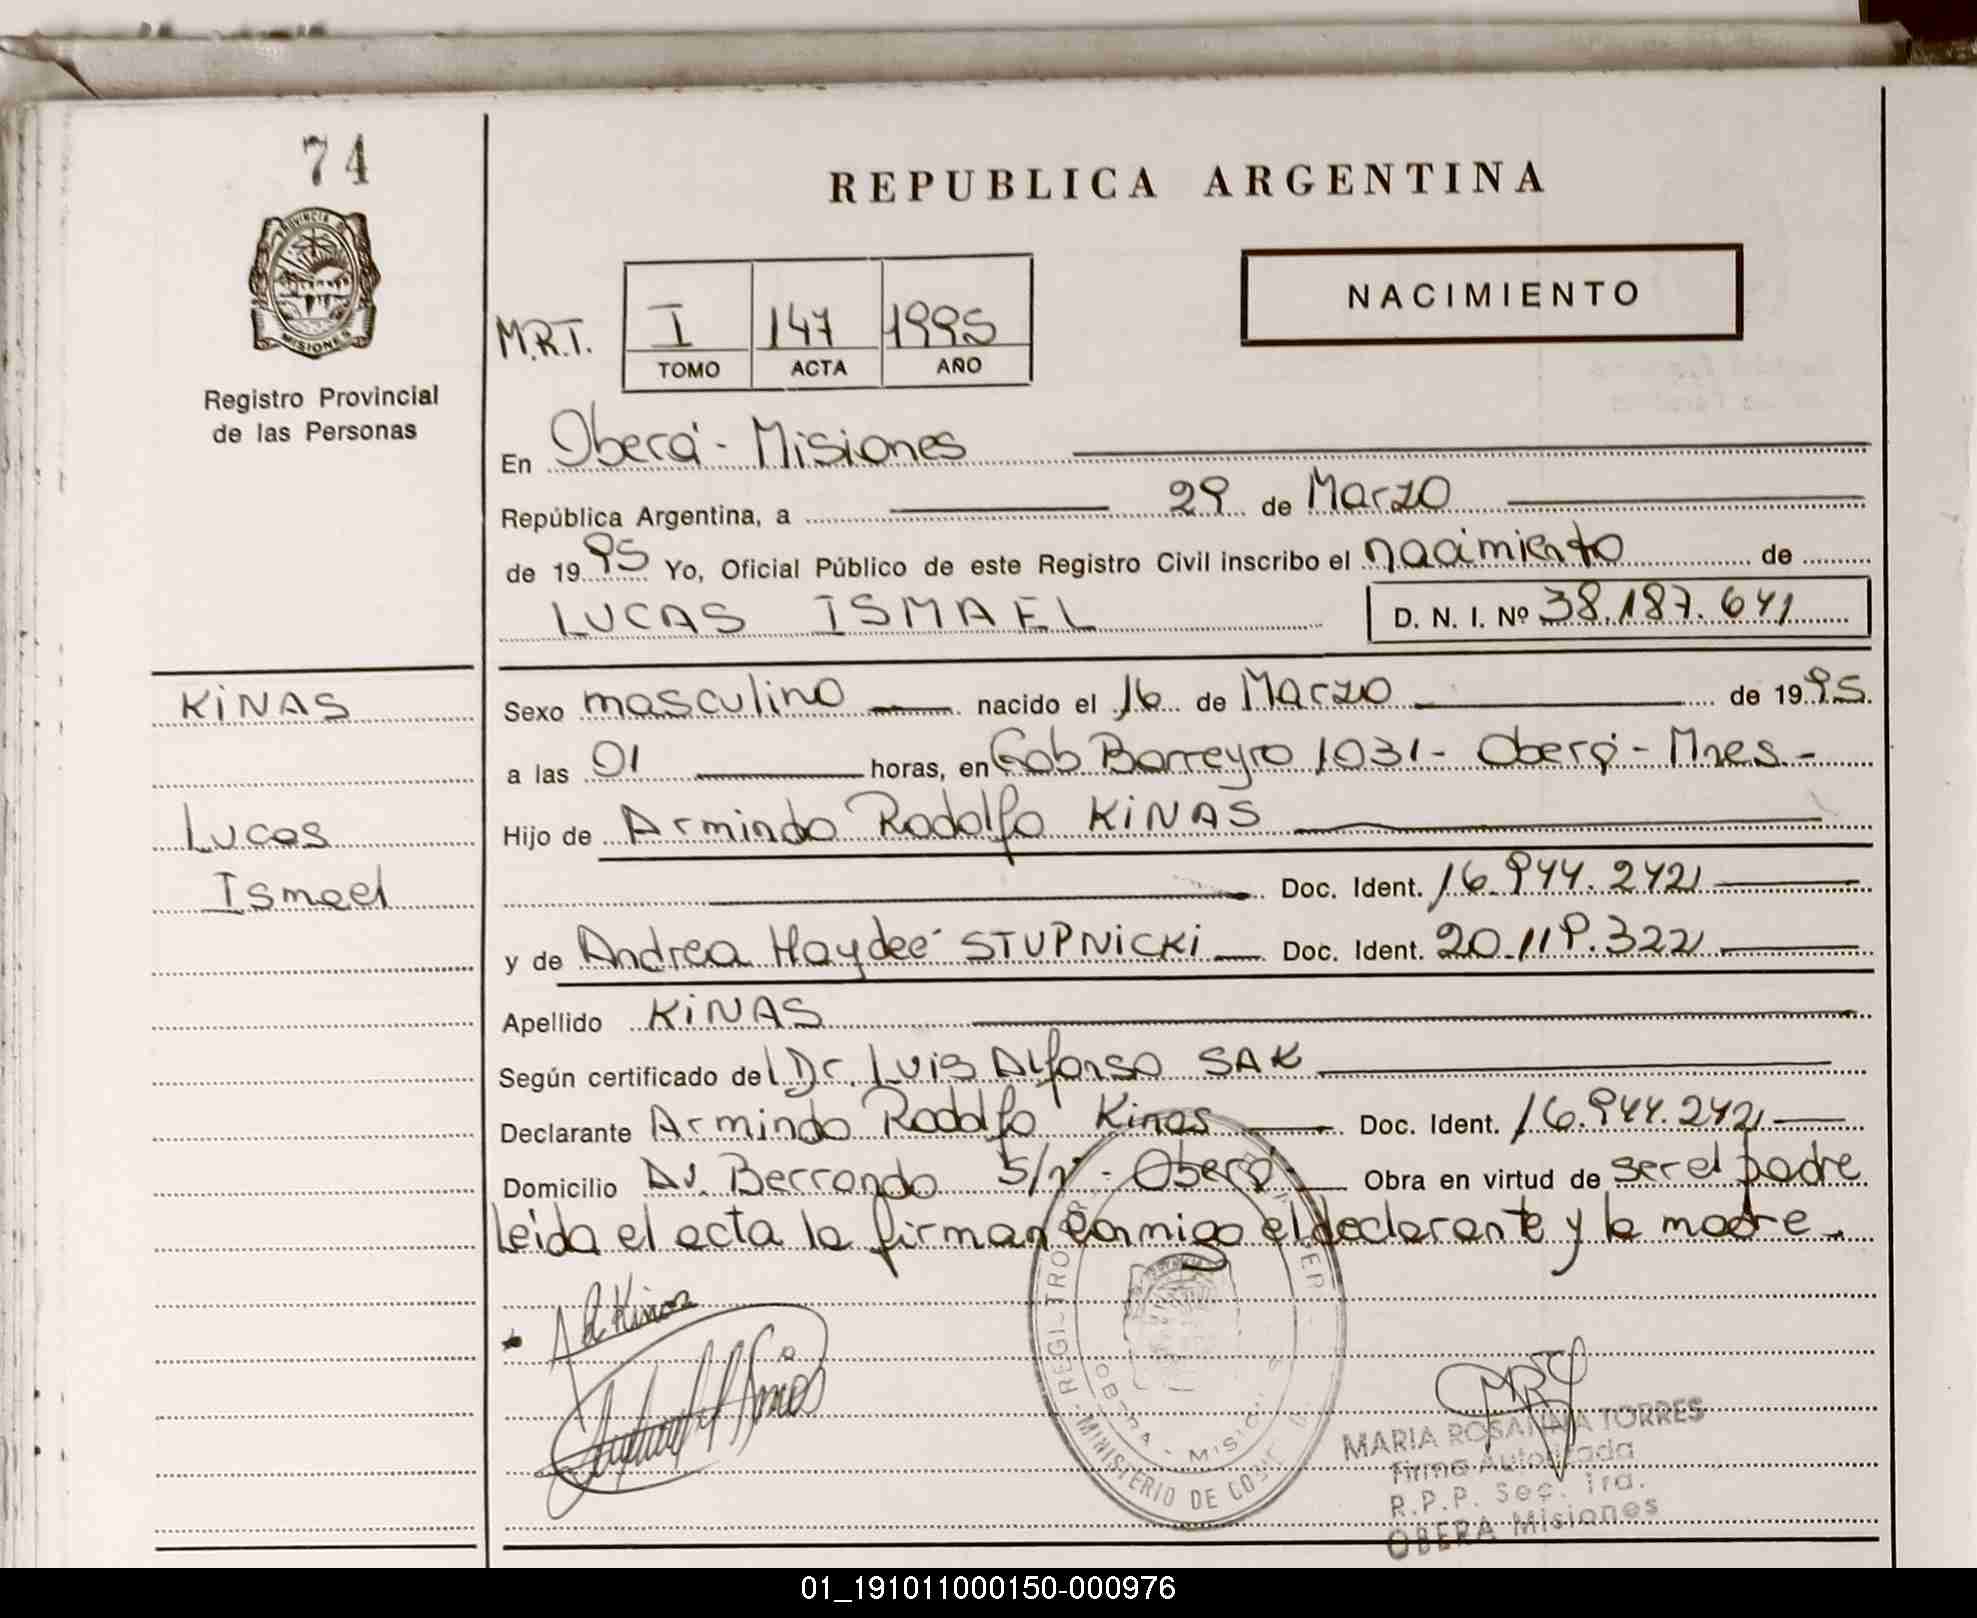 74
REPUBLICA ARGENTINA
PROVINCIA DE
MISIONES
NACIMIENTO
M.R.T. I 147 1995
TOMO ACTA AÑO
Registro Provincial
de las Personas
En Oberá - Misiones
República Argentina, a 29 de Marzo
de 1995 Yo, Oficial Público de este Registro Civil inscribo el nacimiento de
LUCAS ISMAEL D. N. I. Nº 38.187.641
KINAS
Sexo masculino nacido el 16 de Marzo de 1995.
a las 01 horas, en Gob Barreyro 1031 - Oberá - Mnes -
Lucas
Hijo de Armindo Rodolfo KINAS
Ismael
Doc. Ident. 16.944.242
y de Andrea Haydeé STUPNICKI Doc. Ident. 20.119.322
Apellido KINAS
Según certificado del Dr. Luis Alfonso SAK
Declarante Armindo Rodolfo Kinas Doc. Ident. 16.944.242
Domicilio Av. Berrondo S/n - Oberá Obra en virtud de ser el padre
Leida el acta la firman conmigo el declarante y la madre.
A R Kinas
MINISTERIO DE
MARIA ROSANNA TORRES
Firma Autorizada
R.P.P. Sec. 1ra.
OBERA Misiones
01_191011000150-000976